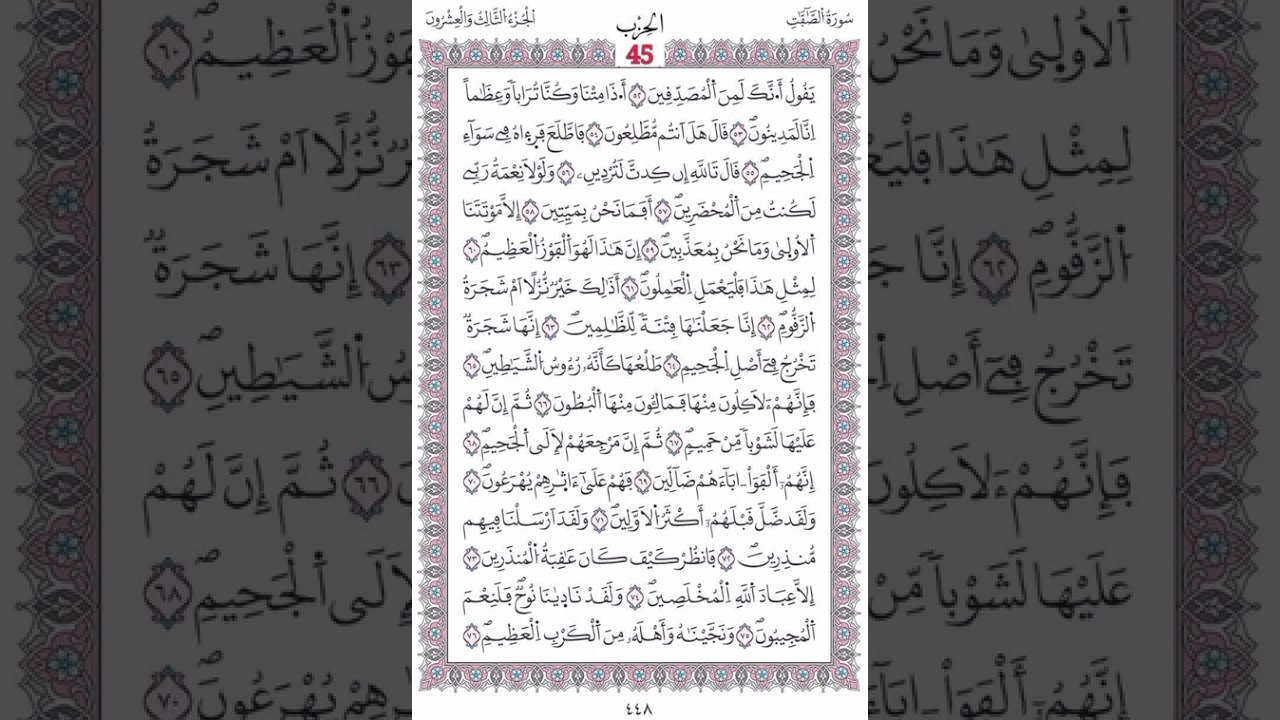 سُورَةُ الصَّٰٓفَّٰتِ
الحِزْب
الْجُزْءُ الثَّالِثُ وَالْعِشْرُونَ
45
يَقُولُ أَ.نَّكَ لَمِنَ اَ۬لْمُصَدِّقِينَۖ ٥٢ أَ.ذَا مِتْنَا وَكُنَّا تُرَاباٗ وَعِظَٰماً
اِنَّا لَمَدِينُونَۖ ٥٣ قَالَ هَلَ اَنتُم مُّطَّلِعُونَ ٥٤ فَاطَّلَعَ فَرَءِاهُ فِے سَوَآءِ
اِ۬لْجَحِيمِۖ ٥٥ قَالَ تَاللَّهِ إِن كِدتَّ لَتُرْدِينِۦ ٥٦ وَلَوْلَا نِعْمَةُ رَبِّے
لَكُنتُ مِنَ اَ۬لْمُحْضَرِينَۖ ٥٧ أَفَمَا نَحْنُ بِمَيِّتِينَ ٥٨ إِلَّا مَوْتَتَنَا
اَ۬لُاولۭىٰ وَمَا نَحْنُ بِمُعَذَّبِينَۖ ٥٩ إِنَّ هَٰذَا لَهُوَ اَ۬لْفَوْزُ اُ۬لْعَظِيمُۖ ٦٠
لِمِثْلِ هَٰذَا فَلْيَعْمَلِ اِ۬لْعَٰمِلُونَۖ ٦١ أَذَٰلِكَ خَيْرٞ نُّزُلًا اَمْ شَجَرَةُ
اُ۬لزَّقُّومِۖ ٦٢ إِنَّا جَعَلْنَٰهَا فِتْنَةٗ لِّلظَّٰلِمِينَۖ ٦٣ إِنَّهَا شَجَرَةٞ
تَخْرُجُ فِےٓ أَصْلِ اِ۬لْجَحِيمِ ٦٤ طَلْعُهَا كَأَنَّهُۥ رُءُوسُ اُ۬لشَّيَٰطِينِۖ ٦٥
فَإِنَّهُمْ ءَلَاكِلُونَ مِنْهَا فَمَالِـُٔونَ مِنْهَا اَ۬لْبُطُونَۖ ٦٦ ثُمَّ إِنَّ لَهُمْ
عَلَيْهَا لَشَوْباٗ مِّنْ حَمِيمٖۖ ٦٧ ثُمَّ إِنَّ مَرْجِعَهُمْ لَإِلَى اَ۬لْجَحِيمِۖ ٦٨
إِنَّهُمُۥٓ أَلْفَوَاْ ابَآءَهُمْ ضَآلِّينَ ٦٩ فَهُمْ عَلَىٰٓ ءَاثٰ۪رِهِمْ يُهْرَعُونَۖ ٧٠
وَلَقَد ضَّلَّ قَبْلَهُمُۥٓ أَكْثَرُ اُ۬لَاوَّلِينَۖ ٧١ وَلَقَدَ اَرْسَلْنَا فِيهِم
مُّنذِرِينَۖ ٧٢ فَانظُرْ كَيْفَ كَانَ عَٰقِبَةُ اُ۬لْمُنذَرِينَ ٧٣
إِلَّا عِبَادَ اَ۬للَّهِ اِ۬لْمُخْلَصِينَۖ ٧٤ وَلَقَدْ نَادۭىٰنَا نُوحٞ فَلَنِعْمَ
اَ۬لْمُجِيبُونَۖ ٧٥ وَنَجَّيْنَٰهُ وَأَهْلَهُۥ مِنَ اَ۬لْكَرْبِ اِ۬لْعَظِيمِۖ ٧٦
٤٤٨